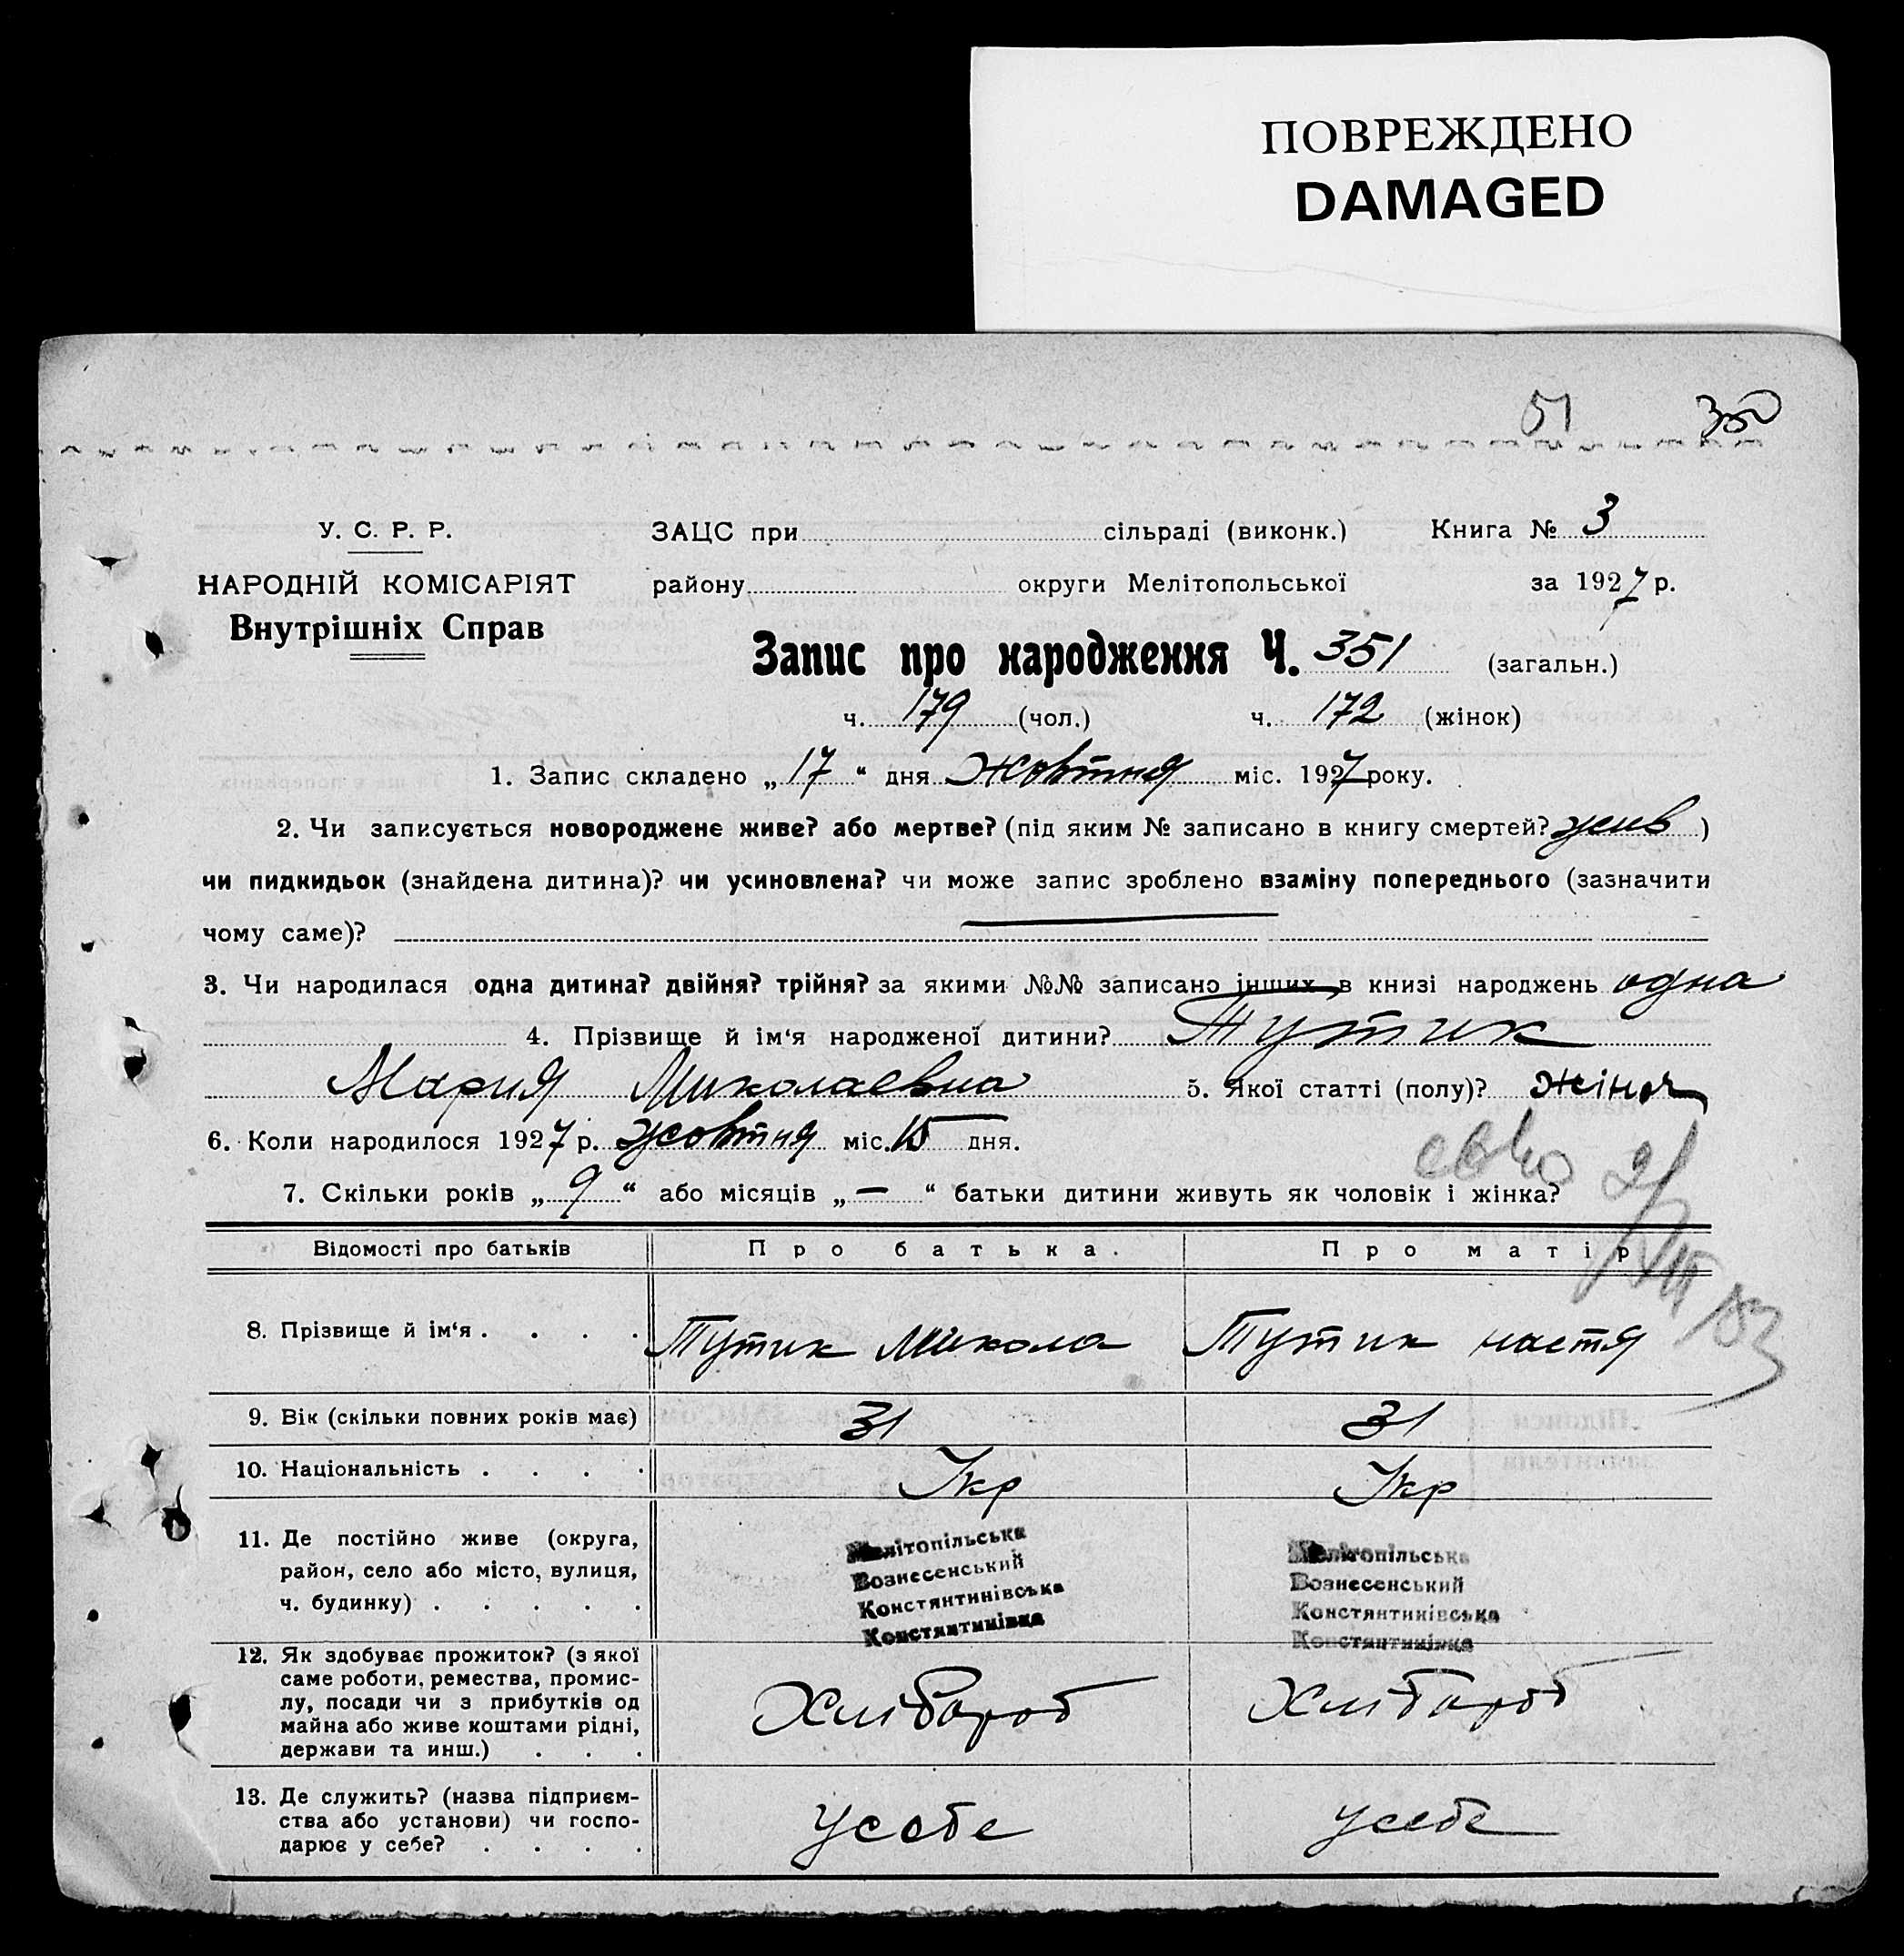 ПОВРЕЖДЕНО
DAMAGED
51 350
У. С. Р. Р.
НАРОДНІЙ КОМІСАРІЯТ
Внутрішніх Справ
ЗАЦС при сільраді (виконк.) Книга № 3
району округи Мелітопольської за 1927 р.
Запис про народження Ч. 351 (загальн.)
ч. 179 (чол.) ч. 172 (жінок)
1. Запис складено „17“ дня Жовтня міс. 1927 року.
2. Чи записується новороджене живе? або мертве? (під яким № записано в книгу смертей? жив)
чи пидкидьок (знайдена дитина)? чи усиновлена? чи може запис зроблено взаміну попереднього (зазначити
чому саме)?
3. Чи народилася одна дитина? двійня? трійня? за якими №№ записано інших в книзі народжень одна
4. Прізвище й ім‘я народженої дитини? Тутик
Мария Миколаевна 5. Якої статті (полу)? жіноч
6. Коли народилося 1927 р. жовтня міс. 15 дня.
7. Скільки років „9“ або місяців „—“ батьки дитини живуть як чоловік і жінка?
Відомості про батьків Про батька. Про матір
8. Прізвище й ім‘я . . . . Тутик Микола Тутик настя
9. Вік (скільки повних років має) 31 31
10. Національність . . . . Укр Укр
11. Де постійно живе (округа,
район, село або місто, вулиця,
ч. будинку) . . . . .
Мелітопільська
Вознесенський
Констянтинівська
Констянтинівка
Мелітопільська
Вознесенський
Констянтинівська
Констянтинівка
12. Як здобуває прожиток? (з якої
саме роботи, ремества, промис-
лу, посади чи з прибутків од
майна або живе коштами рідні,
держави та инш.) . . .
Хлібороб Хлібороб
13. Де служить? (назва підприєм-
ства або установи) чи госпо-
дарює у себе? . . . .
усебе усебе